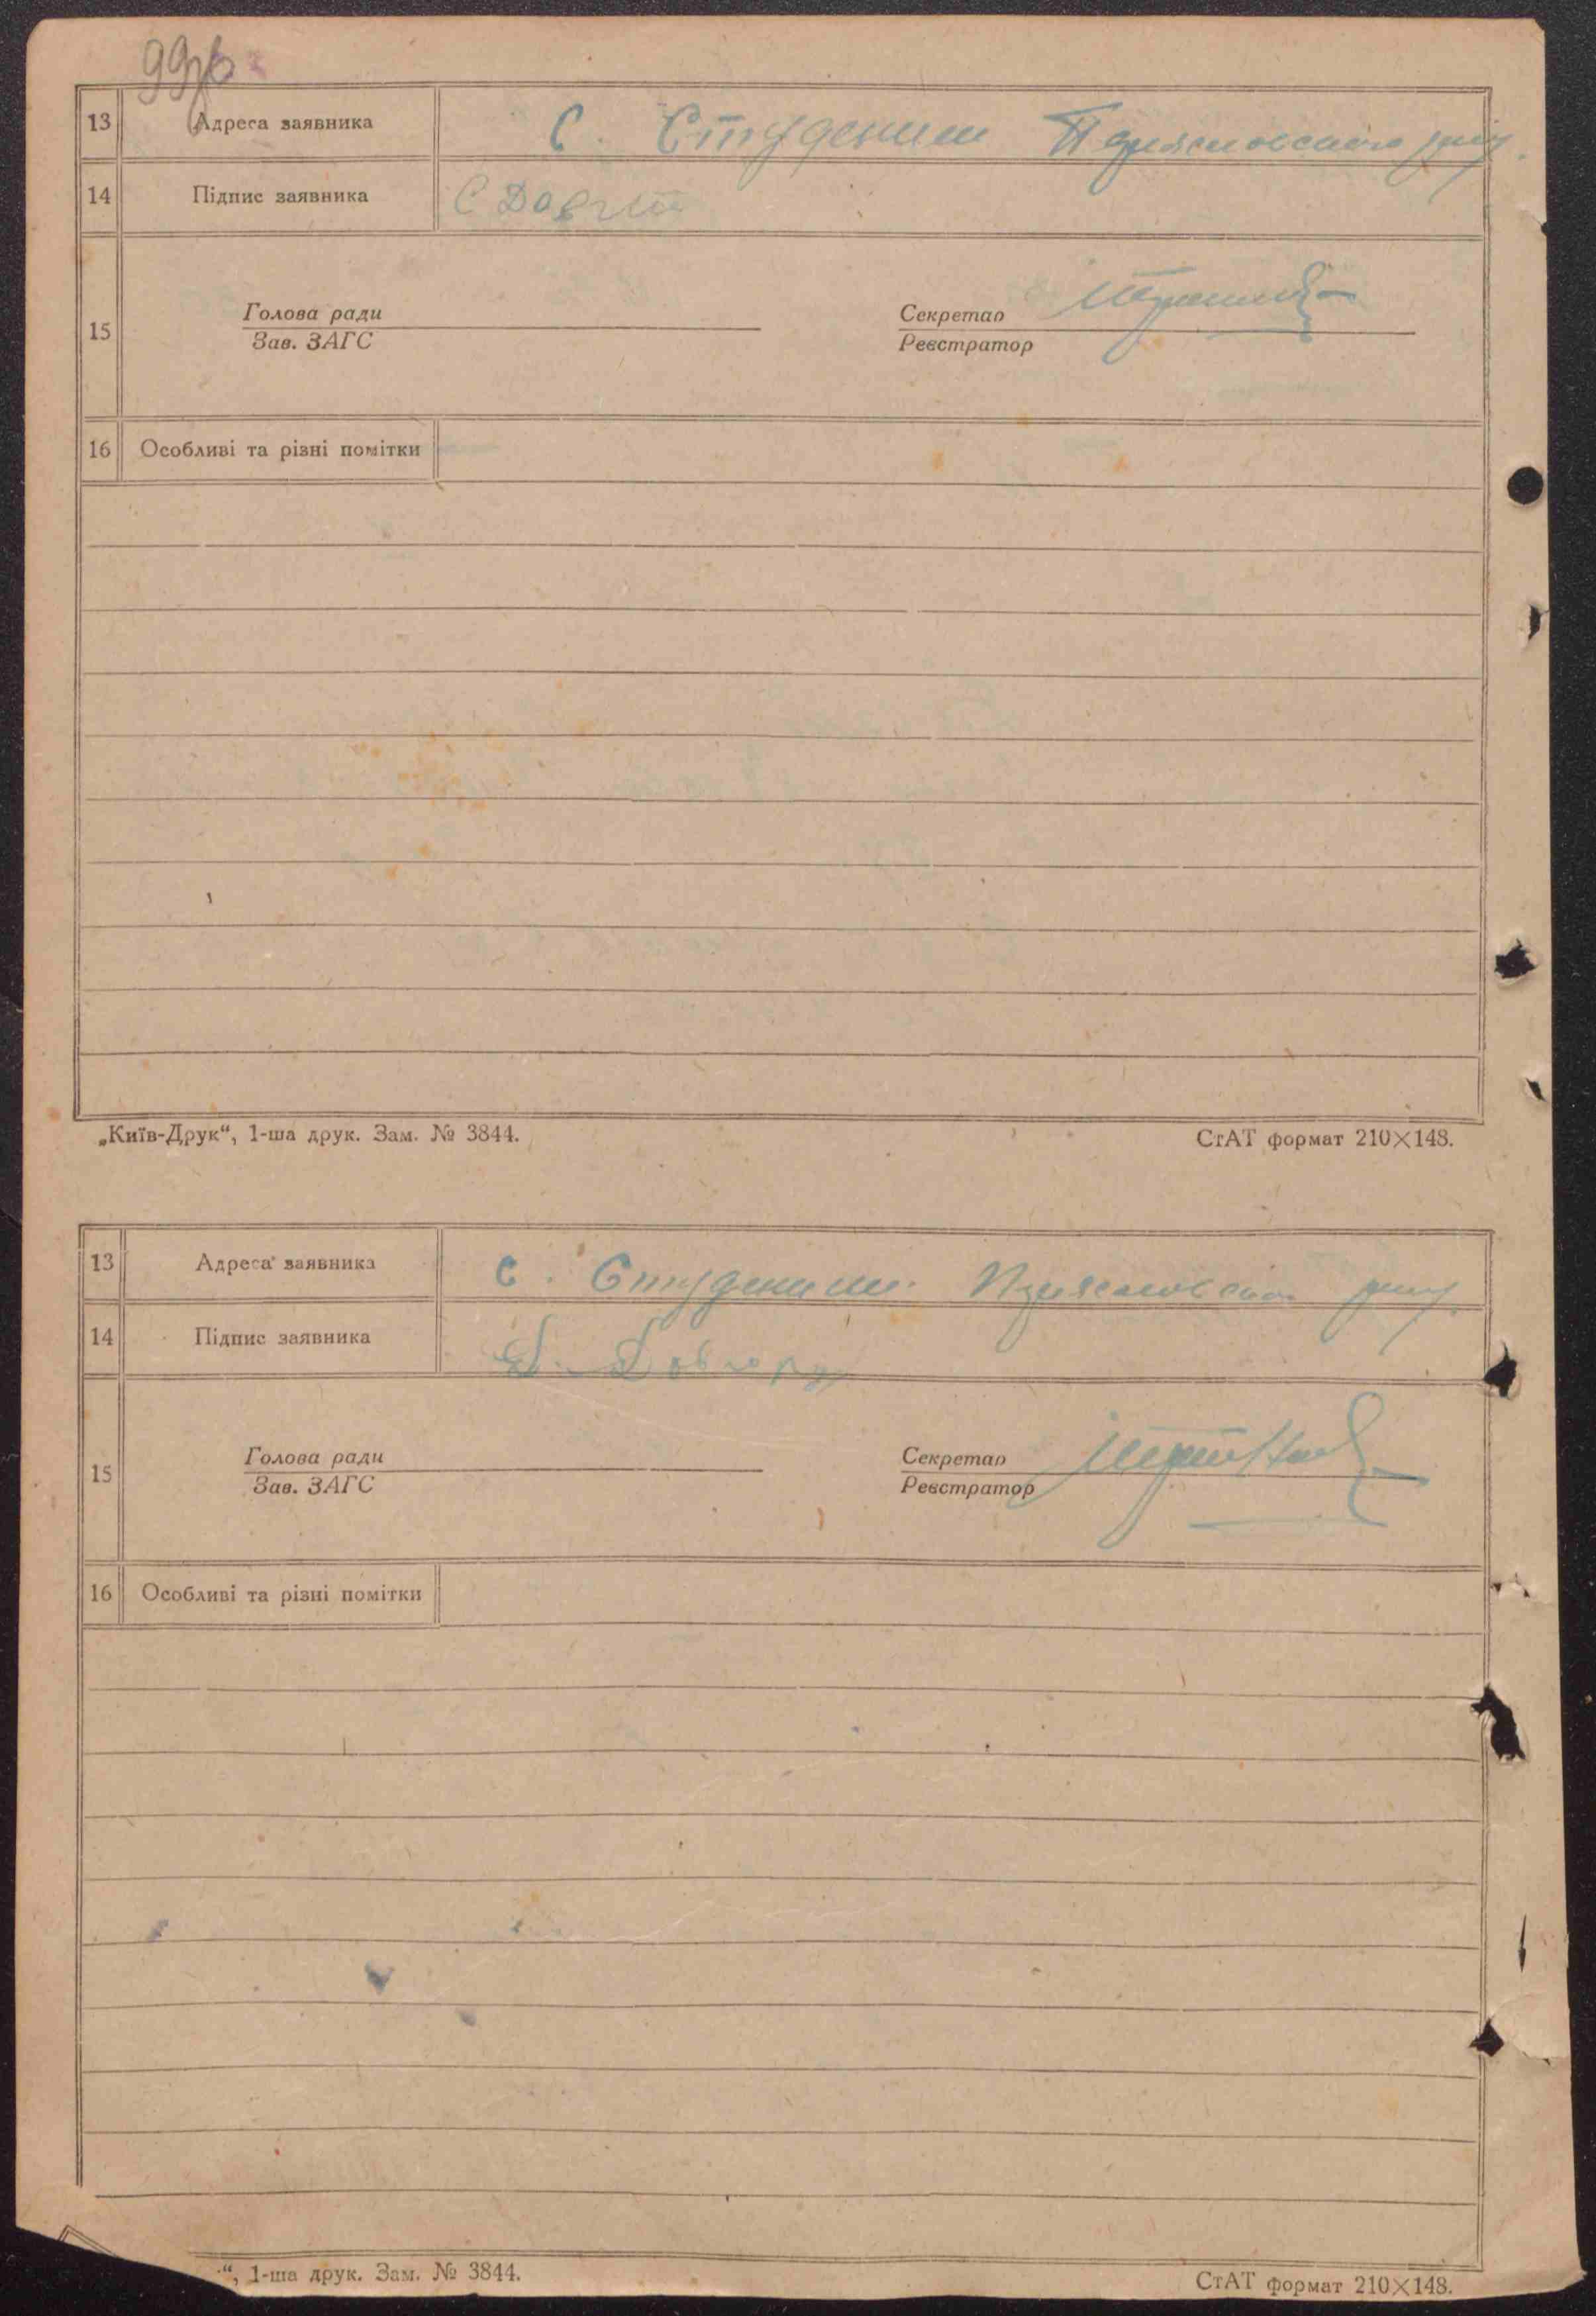 13 Адреса заявника С. Студеники
14 Підпис заявника
15 Голова ради Секретар
Зав. ЗАГС Реєстратор
16 Особливі та різні помітки
„Київ-Друк“, 1-ша друк. Зам. № 3844. СтАТ формат 210×148.
13 Адреса заявника с. Студеники
14 Підпис заявника
15 Голова ради Секретар
Зав. ЗАГС Реєстратор
16 Особливі та різні помітки
“, 1-ша друк. Зам. № 3844. СтАТ формат 210×148.